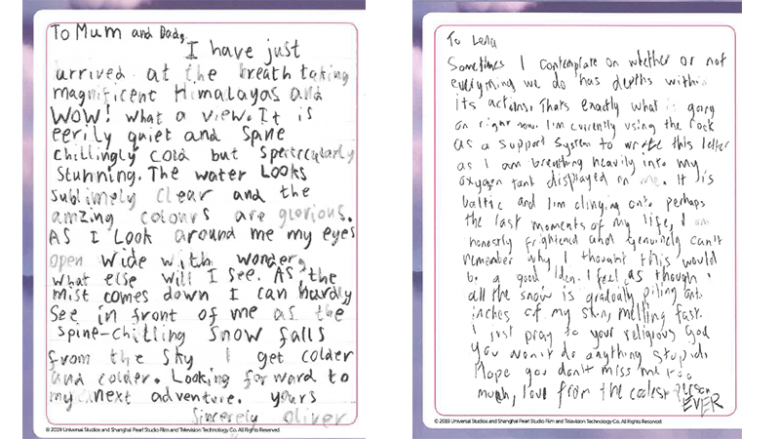 To Mum and Dad,
I have just
arrived at the breath taking
magnificent Himalayas and
WOW! what a view. It is
eerily quiet and spine
chillingly cold but spectrcularly
stunning. The water looks
sublimely clear and the
amzing colours are glorious.
AS I look around me my eyes
open wide with wonder,
what else will I see. As the
mist comes down I can hardly
see in front of me as the
spine-chilling snow falls
from the sky I get colder
and colder. Looking forward to
my next adventure. yours
sincerely Oliver
© 2019 Universal Studios and Shanghai Pearl Studio Film and Television Technology Co. All Rights Reserved.
To Lena
Sometimes I contemplate on whether or not
everything we do has depths within
its actions. Thats exactly what is going
on right now. I'm currently using the rock
as a support system to wrote this letter
as I am breathing heavily into my
oxygen tank displayed on me. It is
baltic and I'm clinging onto perhaps
the last moments of my life, I am
honestly frightened and genuinely can't
remember why I thought this would
be a good iden. I feel as though
all the snow is gradualy piling onto
inches of my skin, melting fast.
I just pray to your religious God
you won't do anything stupid.
Hope you don't miss me too
much, love from the coolest person
EVER
© 2019 Universal Studios and Shanghai Pearl Studio Film and Television Technology Co. All Rights Reserved.